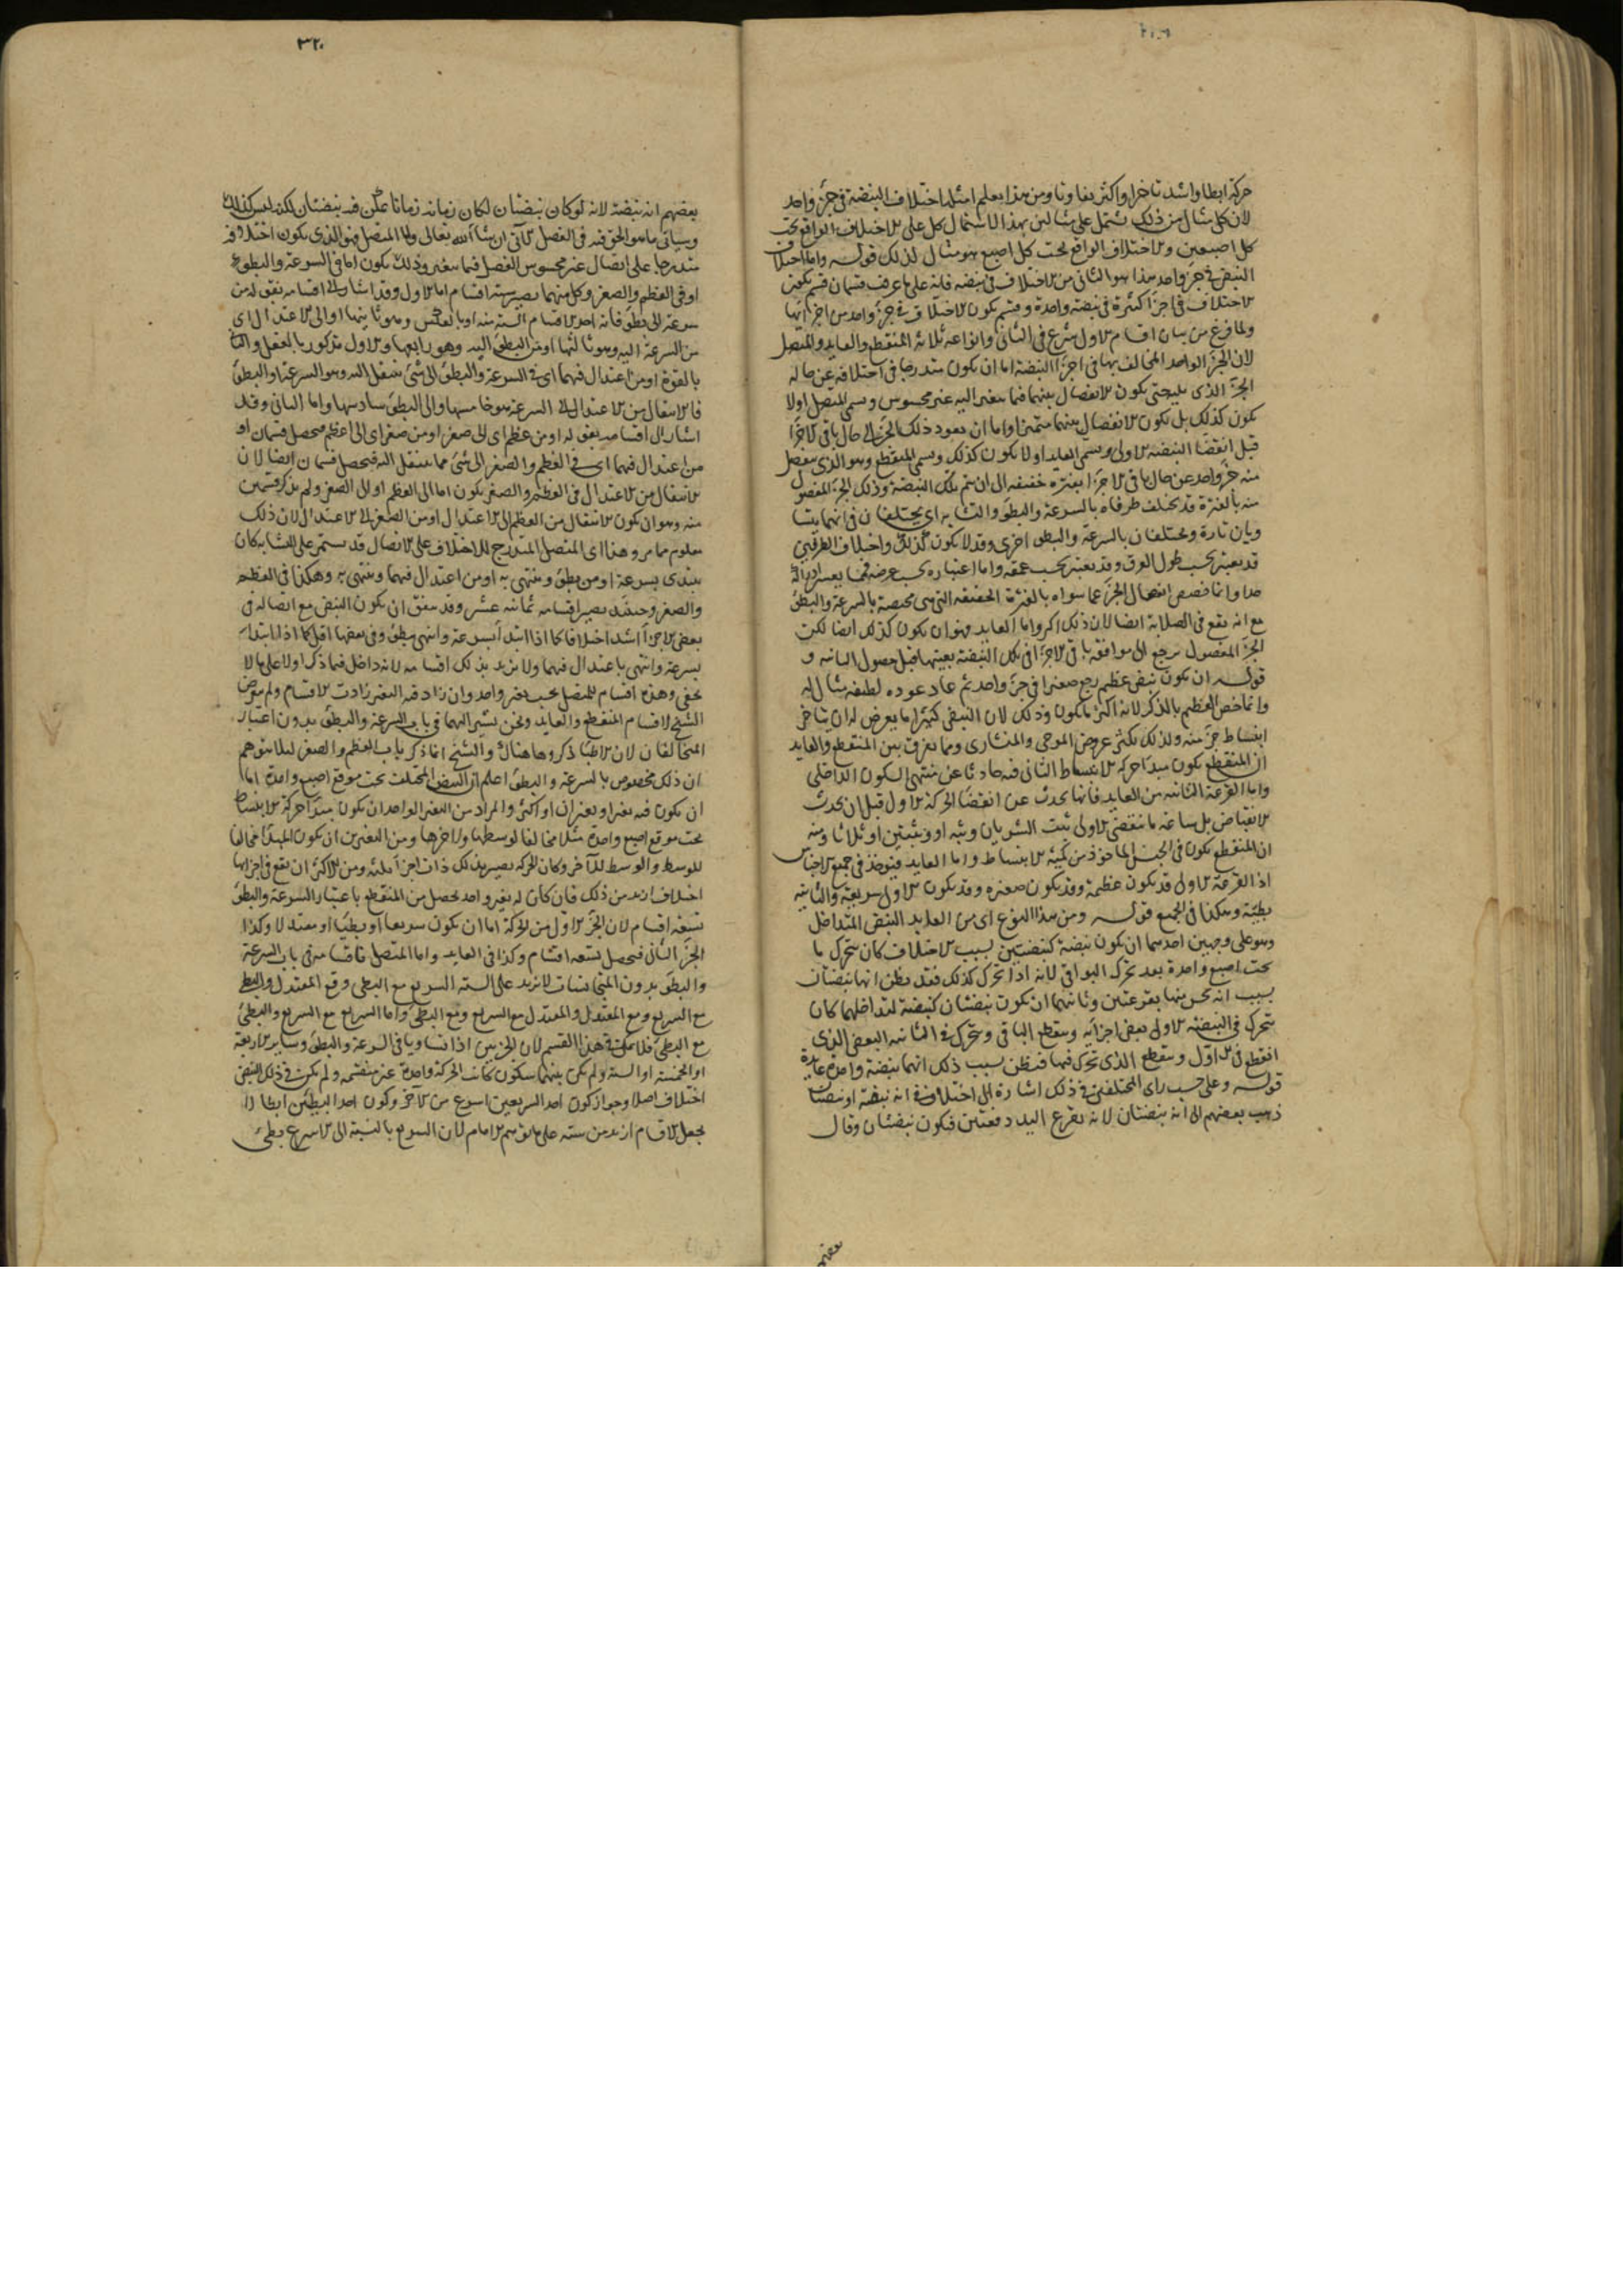 حركة ابطا واشد تاخرا واكثر تفاوتا ومن هذا يعلم امثلة اختلاف النبضة في جزء واحد
لان كل مثال من ذلك يشتمل على مثالين بهذا الاشتمال كل على الاختلاف الواقع تحت
كل اصبعين والاختلاف الواقع تحت كل اصبع هو مثال لذلك قوله واما اختلاف
النبض في جزء واحد هذا هو الثاني من الاختلاف في نبضه فانه على ما عرف قسمان قسم يكون
الاختلاف في اجزاء كثيرة في نبضة واحدة وقسم يكون الاختلاف في جزء واحد من اجزائها
ولما فرغ من بيان اقسام الاول شرع في الثاني وانواعه ثلاثة المنقطع والعايد والمتصل
لان الجزء الواحد المخالف بها في اجزاء النبضة اما ان يكون متدرجا في اختلافه عن حاله
الجزء الذي يليه حتى يكون الانفصال بينهما فيما يتغير اليه غير محسوس ويسمى المتصل اولا
يكون كذلك بل يكون الانفصال بينهما متميزا واما ان يعود ذلك الجزء الى حال باقي الاجزاء
قبل انقضا النبضة الاولى ويسمى العايد اولا يكون كذلك ويسمى المنقطع وهو الذي ينفصل
منه جزء واحد عن حال باقي الاجزاء بفترة خفيفه الى ان يتم تلك النبضة وذلك الجزء المفصول
منه بالفترة قد يختلف طرفاه بالسرعة والبطؤ والتشابه اي يختلفان في انهما يتشا
ويان تارة ويختلفان بالسرعة والبطؤ اخرى وقد لا يكون كذلك واختلاف الطرفين
قد يعتبر بحسب طول العرق وقد يعتبر بحسب عمقه واما اعتباره بحسب عرضه فمما يعسر ادراكه
جدا وانما خصص انفصال الجزء عما سواه بالفترة الحقيقه التي هي مختصة بالسرعة والبطؤ
مع انه يقع في الصلابة ايضا لان ذلك اكثر واما العايد فهو ان يكون كذلك ايضا لكن
الجزء المفصول يرجع الى موافقة باقي الاجزاء في تلك النبضة بعينها قبل حصول الثانيه و
قوله ان يكون نبض عظيم رجع صغيرا في جزء واحد ثم عاد عوده لطيفه مثال له
وانما خص العظيم بالذكر لانه اكثر ما يكون وذلك لان النبض كثيرا ما يعرض له ان يتاخر
انبساط جزء منه ولذلك يكثر عروض الموجي والمنشاري ومما يفرق بين المنقطع والعايد
ان المنقطع يكون مبدا حركة الانبساط الثاني فيه حادثا عن منتهى السكون الداخلي
واما القرعة الثانيه من العايد فانها تحدث عن انقضا الحركة الاولى قبل ان يحدث
ان المنقطع يكون في الجنس الماخوذ من كمية الانبساط واما العايد فيوخذ في جميع الاجناس
اذ القرعة الاولى قد يكون عظيمة وقد يكون صغيره وقد يكون الاولى سريعة والثانية
بطيئة وهكذا في الجميع قوله ومن هذا النوع اي من العايد النبض المتداخل
وهو على وجهين احدهما ان يكون نبضة كنبضتين بسبب الاختلاف كان يتحرك ما
تحت اصبع واحدة بعد تحرك البواقي لانه اذا تحرك كذلك فقد يظن انها نبضتان
بسبب انه يحس منها بقرعتين وثانيهما ان يكون نبضتان كنبضة لتداخلهما كان
يتحرك في النبضة الاولى بعض اجزايه وينقطع الباقي ويتحرك في الثانيه البعض الذي
انقطع في الاول وينقطع الذي تحرك فيها فيظن بسبب ذلك انهما نبضة واحدة عايدة
قوله وعلى حسب راى المختلفين في ذلك اشارة الى اختلافهم في انه نبضة او نبضتان
ذهب بعضهم الى انه نبضتان لانه يقرع اليد دفعتين فيكون نبضتان وقال
بعضهم
٣٢٠
بعضهم انه نبضة لانه لو كان نبضتان لكان زمانه زمانا يمكن فيه نبضتان لكنه ليس كذلك
وسياتي ما هو الحق فيه في الفصل الآتي ان شاء الله تعالى واما المتصل فهو الذي يكون اختلافه
متدرجا على اتصال غير محسوس الفصل فيما يتغير وذلك يكون اما في السرعة والبطؤ
او في العظم والصغر وكل منهما يصير ستة اقسام اما الاول وقد اشار الى اقسامه بقوله من
سرعة الى بطؤ فانه احد الاقسام الستة منه او بالعكس وهو ثانيها او الى الاعتدال اي
من السرعة اليه وهو ثالثها او من البطؤ اليه وهو رابعها والاول مذكور بالفعل والثاني
بالقوة او من اعتدال فيهما اي في السرعة والبطؤ الى شي ينتقل اليه وهو السرعة او البطؤ
فالانتقال من الاعتدال الى السرعة هو خامسها والى البطؤ سادسها واما الثاني وقد
اشار الى اقسامه بقوله او من عظم اي الى صغر او من صغر اي الى عظم فيحصل قسمان او
من اعتدال فيهما اي في العظم والصغر الى شي مما ينتقل اليه فيحصل قسمان ايضا لان
الانتقال من الاعتدال في العظم والصغر يكون اما الى العظم او الى الصغر ولم يذكر قسمين
منه وهو ان يكون الانتقال من العظم الى الاعتدال او من الصغر الى الاعتدال لان ذلك
معلوم مما مر وهذا اي المتصل المتدرج للاختلاف على الاتصال قد يستمر على التشابه كان
يبتدى بسرعة او من بطؤ وينتهي به او من اعتدال فيهما وينتهي به وهكذا في العظم
والصغر وحينئذ يصير اقسامه ثمانيه عشر وقد يتفق ان يكون النبض مع اتصاله في
بعض الاجزاء اشد اختلافا كما اذا ابتدأ بسرعة وانتهى ببطؤ وفي بعضها اقل كما اذا ابتداء
بسرعة وانتهى باعتدال فيهما ولا يزيد بذلك اقسامه لانه داخل فيما ذكر اولا على ما لا
يخفى وهذه اقسام للمتصل بحسب تغير واحد وان زاد فيه التغير زادت الاقسام ولم يتعرض
الشيخ لاقسام المنقطع والعايد ونحن نشير اليهما في باب السرعة والبطؤ بدون اعتبار
المتخالفان لان الاطبا ذكروها هناك والشيخ انما ذكر باب العظم والصغر ليلا يتوهم
ان ذلك مخصوص بالسرعة والبطؤ اعلم ان النبض المختلف تحت موقع اصبع واحدة اما
ان يكون فيه تغير او تغيران او اكثر والمراد من التغير الواحد ان يكون مبدا حركة الانبساط
تحت موقع اصبع واحدة مثلا مخالفا لوسطها ولاخرها ومن التغيرين ان يكون المبدا مخالفا
للوسط والوسط للآخر وكان الحركة يصير بذلك ذات اجزاء ثلثة ومن الاكثر ان يقع في اجزائها
اختلاف ازيد من ذلك فان كان له تغير واحد يحصل من المنقطع باعتبار السرعة والبطؤ
تسعة اقسام لان الجزء الاول من الحركة اما ان يكون سريعا او بطيئا او معتدلا وكذا
الجزء الثاني فيحصل تسعه اقسام وكذا في العايد واما المتصل فاقسامه في باب السرعة
والبطؤ بدون المتجانسات لا تزيد على الستة السريع مع البطي ومع المعتدل والبطي
مع السريع ومع المعتدل والمعتدل مع السريع ومع البطئ واما السريع مع السريع والبطئ
مع البطئ فلا يمكن في هذا القسم لان الجزئين اذا تساويا في السرعة والبطؤ وساير الاربعة
او الخمسة او الستة ولم يكن بينهما سكون كانت الحركة واحدة غير منقسمه ولم يكن في ذلك النبض
اختلاف اصلا وجواز كون احد السريعين اسرع من الآخر وكون احد البطيئين ابطا لا
يجعل الاقسام ازيد من ستة على ما توهم الامام لان السريع بالنسبة الى الاسرع بطئ